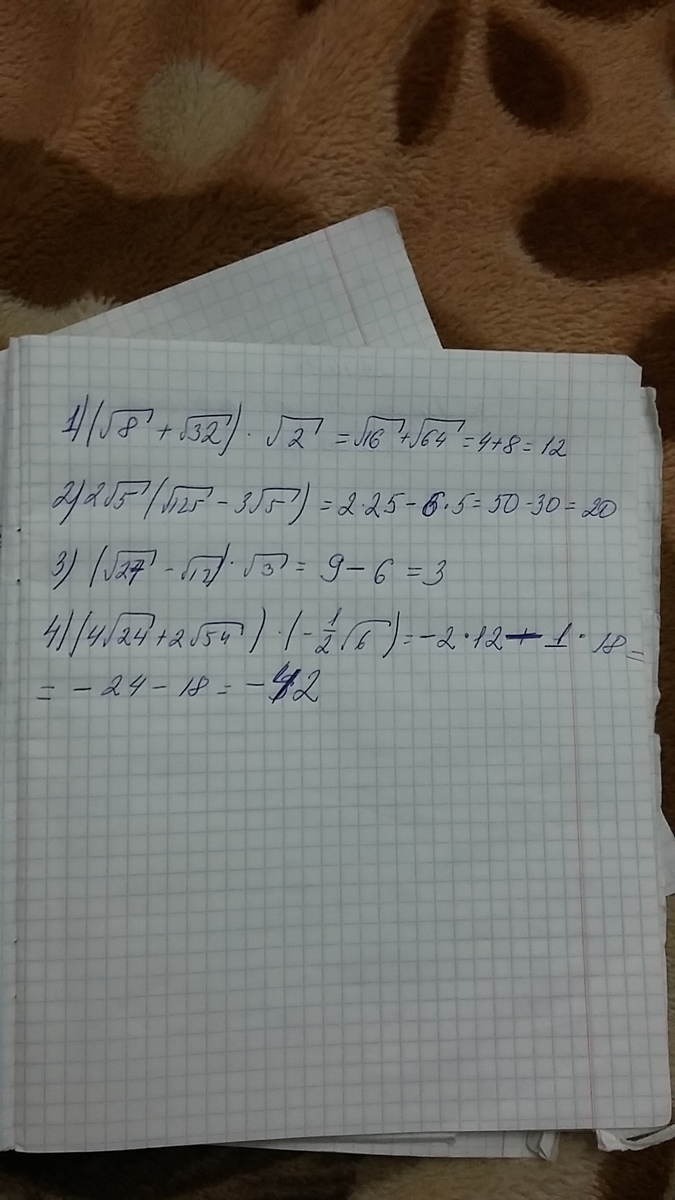 1) (√8 + √32) · √2 = √16 + √64 = 4+8 = 12
2) 2√5 (√125 - 3√5) = 2·25 - 6·5 = 50 - 30 = 20
3) (√27 - √12) · √3 = 9 - 6 = 3
4) (4√24 + 2√54) · (-1/2 √6) = -2·12 - 1·18 =
= - 24 - 18 = -42